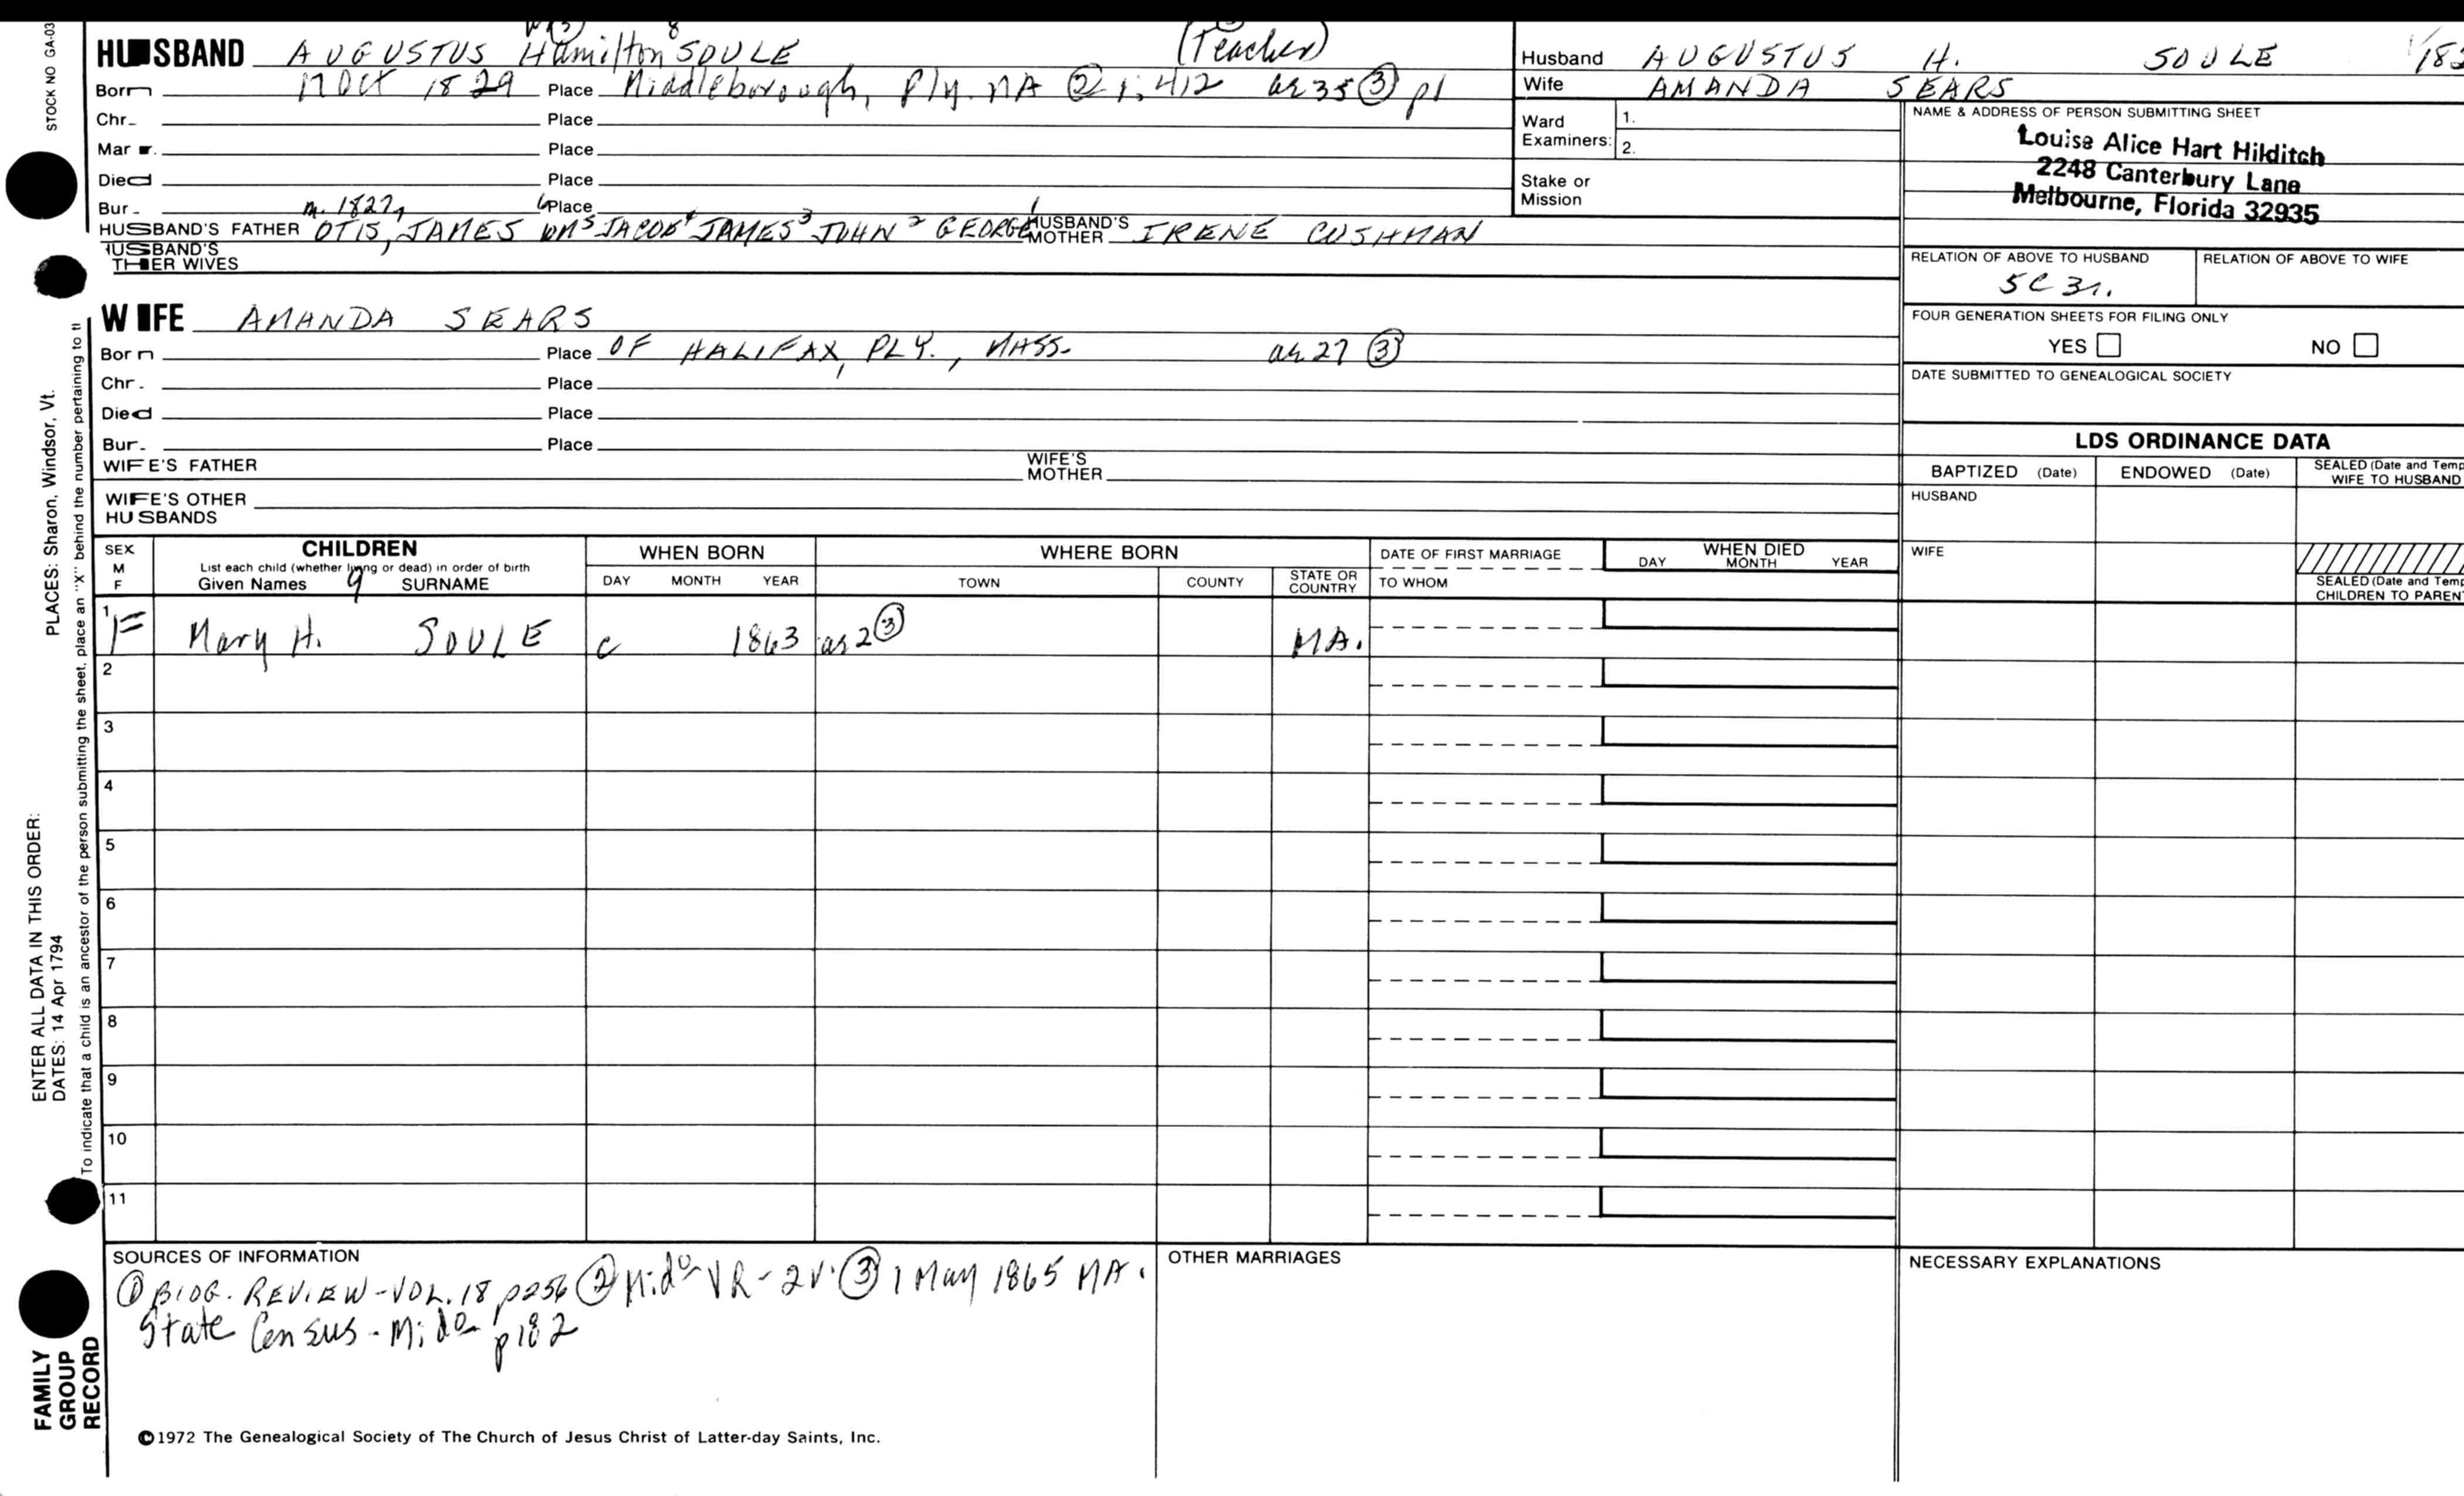 STOCK NO GA-03
HUSBAND AUGUSTUS Hamilton 8 SOULE (Teacher)
Born 17 Oct 1829 Place Middleborough, Ply. MA ② 1:412 as 35 ③ pl
Chr. Place
Mar. Place
Died Place
Bur. Place
m. 1827
HUSBAND'S FATHER OTIS, JAMES 6 WM 5 JACOB 4 JAMES 3 JOHN 2 GEORGE 1 HUSBAND'S MOTHER IRENE CUSHMAN
HUSBAND'S
OTHER WIVES
WIFE AMANDA SEARS
Born Place OF HALIFAX, PLY., MASS. as 27 ③
Chr. Place
Died Place
Bur. Place
WIFE'S FATHER WIFE'S MOTHER
WIFE'S OTHER
HUSBANDS
Husband AUGUSTUS H. SOULE
Wife AMANDA SEARS
Ward
Examiners: 1.
2.
Stake or
Mission
NAME & ADDRESS OF PERSON SUBMITTING SHEET
Louise Alice Hart Hilditch
2248 Canterbury Lane
Melbourne, Florida 32935
RELATION OF ABOVE TO HUSBAND RELATION OF ABOVE TO WIFE
5C 3r.
FOUR GENERATION SHEETS FOR FILING ONLY
YES NO
DATE SUBMITTED TO GENEALOGICAL SOCIETY
LDS ORDINANCE DATA
BAPTIZED (Date) ENDOWED (Date) SEALED (Date and Temp
WIFE TO HUSBAND
HUSBAND
WIFE
SEALED (Date and Temp
CHILDREN TO PAREN
SEX
M
F
CHILDREN
List each child (whether living or dead) in order of birth
Given Names 9 SURNAME
WHEN BORN
DAY MONTH YEAR
WHERE BORN
TOWN COUNTY STATE OR COUNTRY
DATE OF FIRST MARRIAGE
TO WHOM
WHEN DIED
DAY MONTH YEAR
1 F Mary H. SOULE c 1863 as 2 ③ MA.
2
3
4
5
6
7
8
9
10
11
SOURCES OF INFORMATION
① BIOG. REVIEW - VOL. 18 p256 ② Mido VR - 2V. ③ 1 May 1865 MA.
State Census - Mido p182
OTHER MARRIAGES
NECESSARY EXPLANATIONS
©1972 The Genealogical Society of The Church of Jesus Christ of Latter-day Saints, Inc.
PLACES: Sharon, Windsor, Vt.
ENTER ALL DATA IN THIS ORDER:
DATES: 14 Apr 1794
To indicate that a child is an ancestor of the person submitting the sheet, place an "X" behind the number pertaining to
FAMILY
GROUP
RECORD